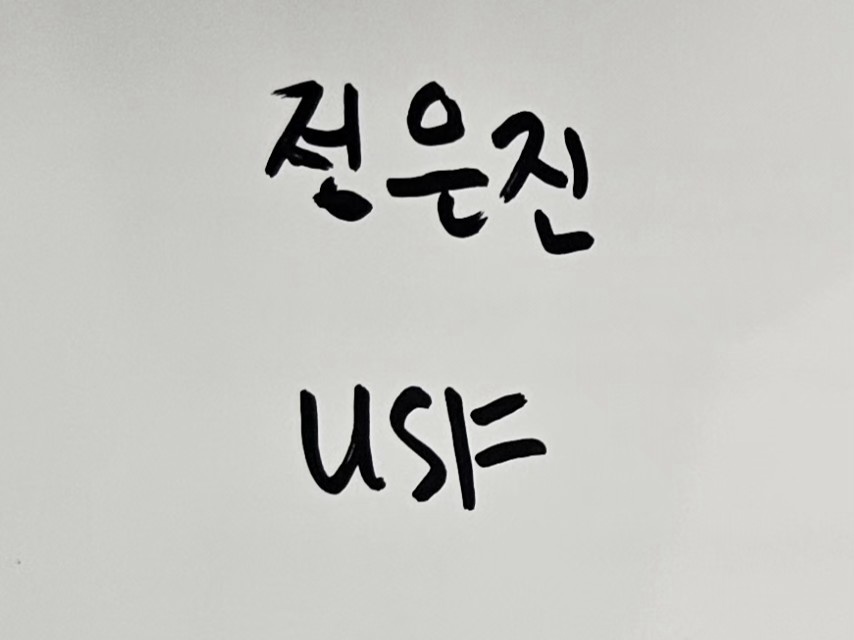 정은진
USF